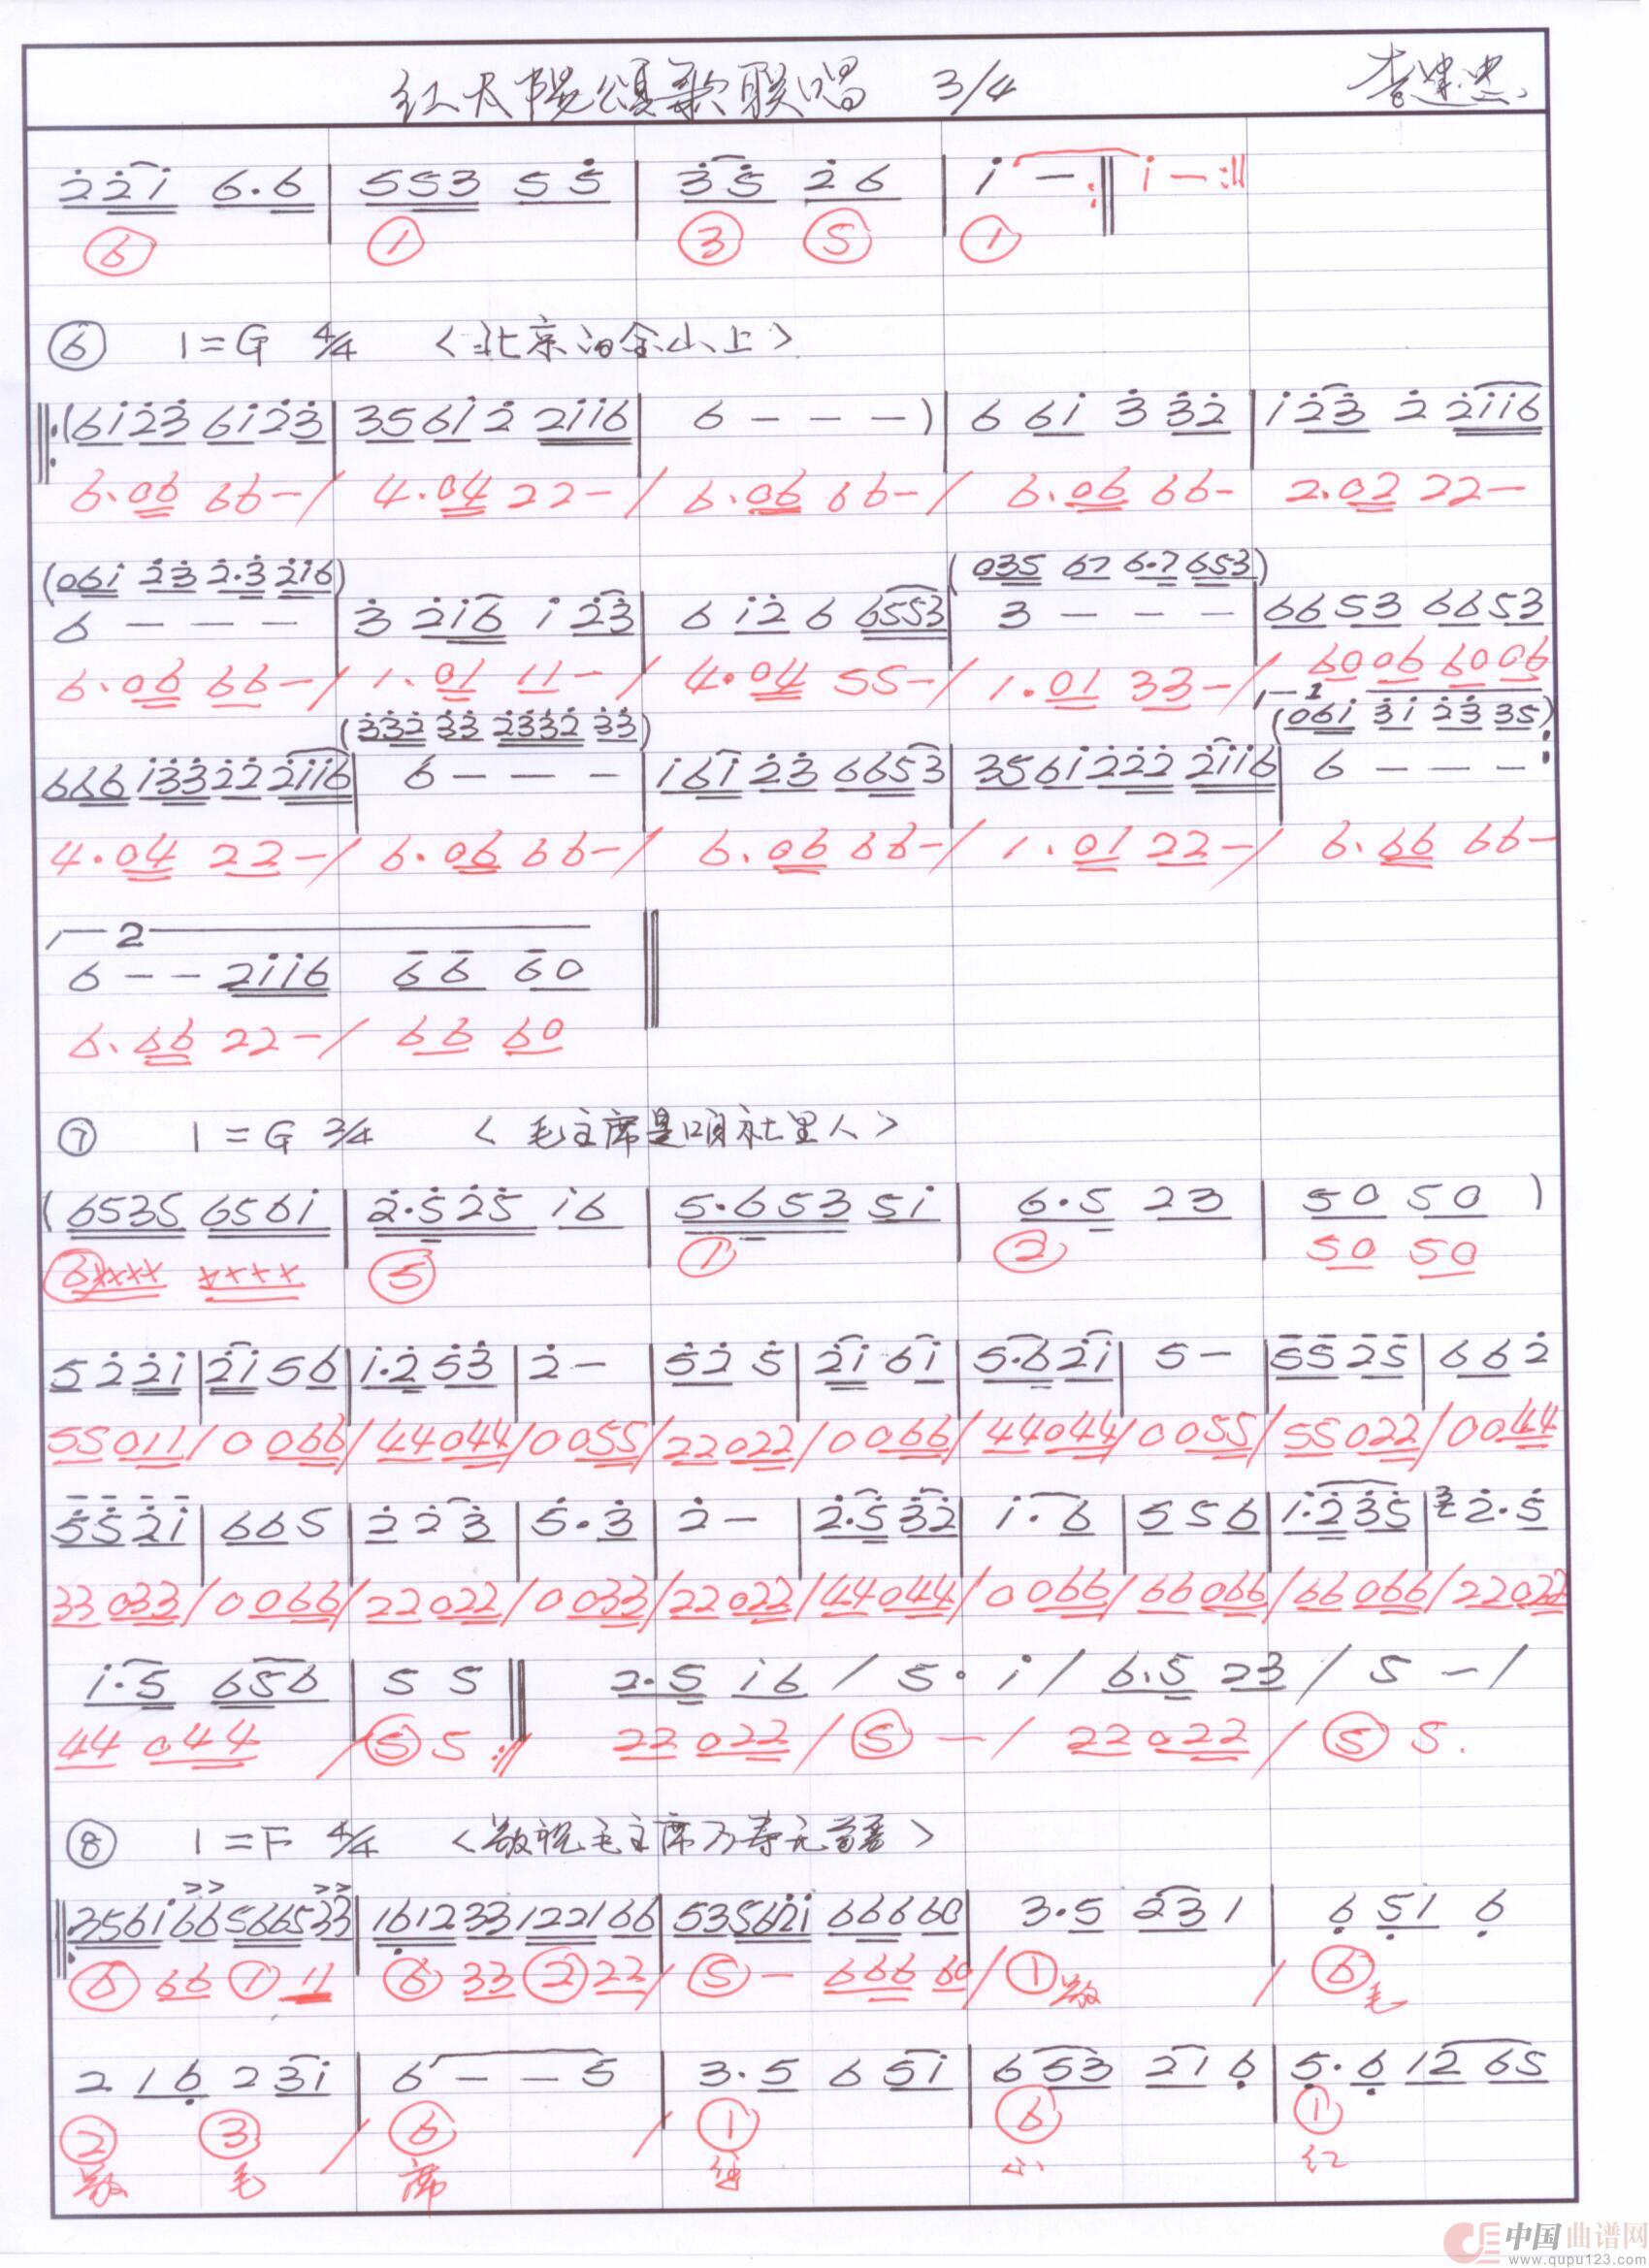 红太陽頌歌联唱 3/4 李建忠
2̇ 2̇ 1̇ 6.6 | 5 5 3 5 5̇ | 3̇ 5̇ 2̇ 6 | 1̇ - :|| 1̇ - :||
⑥ ① ③ ⑤ ①
⑥ 1=G 4/4 〈北京的金山上〉
||:(6 1̇ 2̇ 3̇ 6 1̇ 2̇ 3̇ | 3 5 6 1̇ 2̇ 2̇ 1̇ 1̇ 6 | 6 - - -) | 6 6 1̇ 3̇ 3̇ 2̇ | 1̇ 2̇ 3̇ 2̇ 2̇ 1̇ 1̇ 6
6.06 66-/ 4.04 22-/ 6.06 66-/ 6.06 66- 2.02 22-
(0 6 1̇ 2̇ 3̇ 2̇.3̇ 2̇ 1̇ 6) (0 3 5 6 7 6.7 6 5 3)
6 - - - | 3̇ 2̇ 1̇ 6 1̇ 2̇ 3̇ | 6 1̇ 2̇ 6 6 5 5 3 | 3 - - - | 6 6 5 3 6 6 5 3
6.06 66-/ 1.01 11-/ 4.04 55-/ 1.01 33-/ 6006 6006
(3̇ 3̇ 2̇ 3̇ 3̇ 2̇ 3̇ 3̇ 2̇ 3̇ 3̇) 1 (0 6 1̇ 3̇ 1̇ 2̇ 3̇ 3 5)
6 6 6 1̇ 3̇ 3̇ 2̇ 2̇ 2̇ 1̇ 1̇ 6 | 6 - - - | 1̇ 6 1̇ 2̇ 3̇ 6 6 5 3 | 3 5 6 1̇ 2̇ 2̇ 2̇ 2̇ 1̇ 1̇ 6 | 6 - - - :
4.04 22-/ 6.06 66-/ 6.06 66-/ 1.01 22-/ 6.66 66-
2
6 - - 2 1̇ 1̇ 6 6 6 6 0 ||
6.66 22-/ 66 60
⑦ 1=G 2/4 〈毛主席是咱社里人〉
(6 5 3 5 6 5 6 1̇ | 2̇.5̇ 2̇ 5̇ 1̇ 6 | 5.6 5 3 5 1̇ | 6.5 2 3 | 5 0 5 0)
⑥xxxx xxxx ⑤ ① ② 50 50
5 2̇ 2̇ 1̇ | 2̇ 1̇ 5 6 | 1̇.2̇ 5̇ 3̇ | 2̇ - | 5̇ 2̇ 5̇ | 2̇ 1̇ 6 1̇ | 5.6 2̇ 1̇ | 5 - | 5̇ 5̇ 2̇ 5̇ | 6 6 2̇
55011/0066/44044/0055/22022/0066/44044/0055/55022/0044
5̇ 5̇ 2̇ 1̇ | 6 6 5 | 2̇ 2̇ 3̇ | 5̇.3̇ | 2̇ - | 2̇.5̇ 3̇ 2̇ | 1̇.6 | 5 5 6 | 1̇.2̇ 3̇ 5̇ | 3 2̇.5̇
33033/0066/22022/0033/22022/44044/0066/66066/66066/22022
1̇.5 6 5 6 | 5 5 || 2.5 1̇ 6 / 5. 1̇ / 6.5 2 3 / 5 - /
44 044 / ⑤ 5 :// 22 022 / ⑤ - / 22 022 / ⑤ 5.
⑧ 1=F 4/4 〈敬祝毛主席万寿无疆〉
||: 3 5 6 1̇ 6 6 5 6 6 5 3 3 | 1 6̣ 1 2 3 3 1 2 2 1 6 6 | 5 3 5 6 2̇ 1̇ 6 6 6 6 0 | 3.5 2 3 1 | 6̣ 5̣ 1 6̣
⑥ 66 ① 11 ⑥ 33 ② 22 / ⑤ - 666 60 / ① 敬 / ⑥ 毛
2 1 6̣ 2 3 1̇ | 6 - - 5 | 3.5 6 5 1̇ | 6 5 3 2 1 6̣ | 5̣.6̣ 1 2 6 5
② ③ / ⑥ / ① ⑥ ①
敬 毛 席 心 红
中国曲谱网
www.qupu123.com